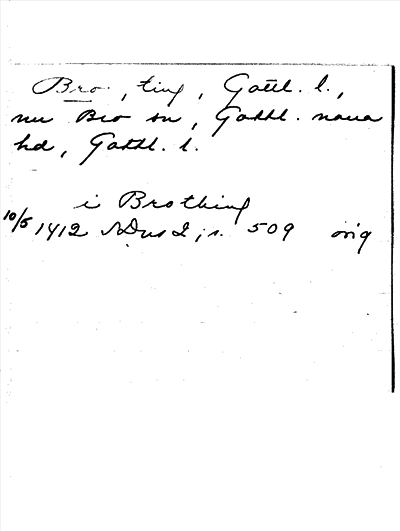 Bro, ting, Gottl. l.,
nu Bro sn, Gottl. norra
hd, Gottl. l.
i Brothing
10/5 1412 SDns 2, s. 509 orig